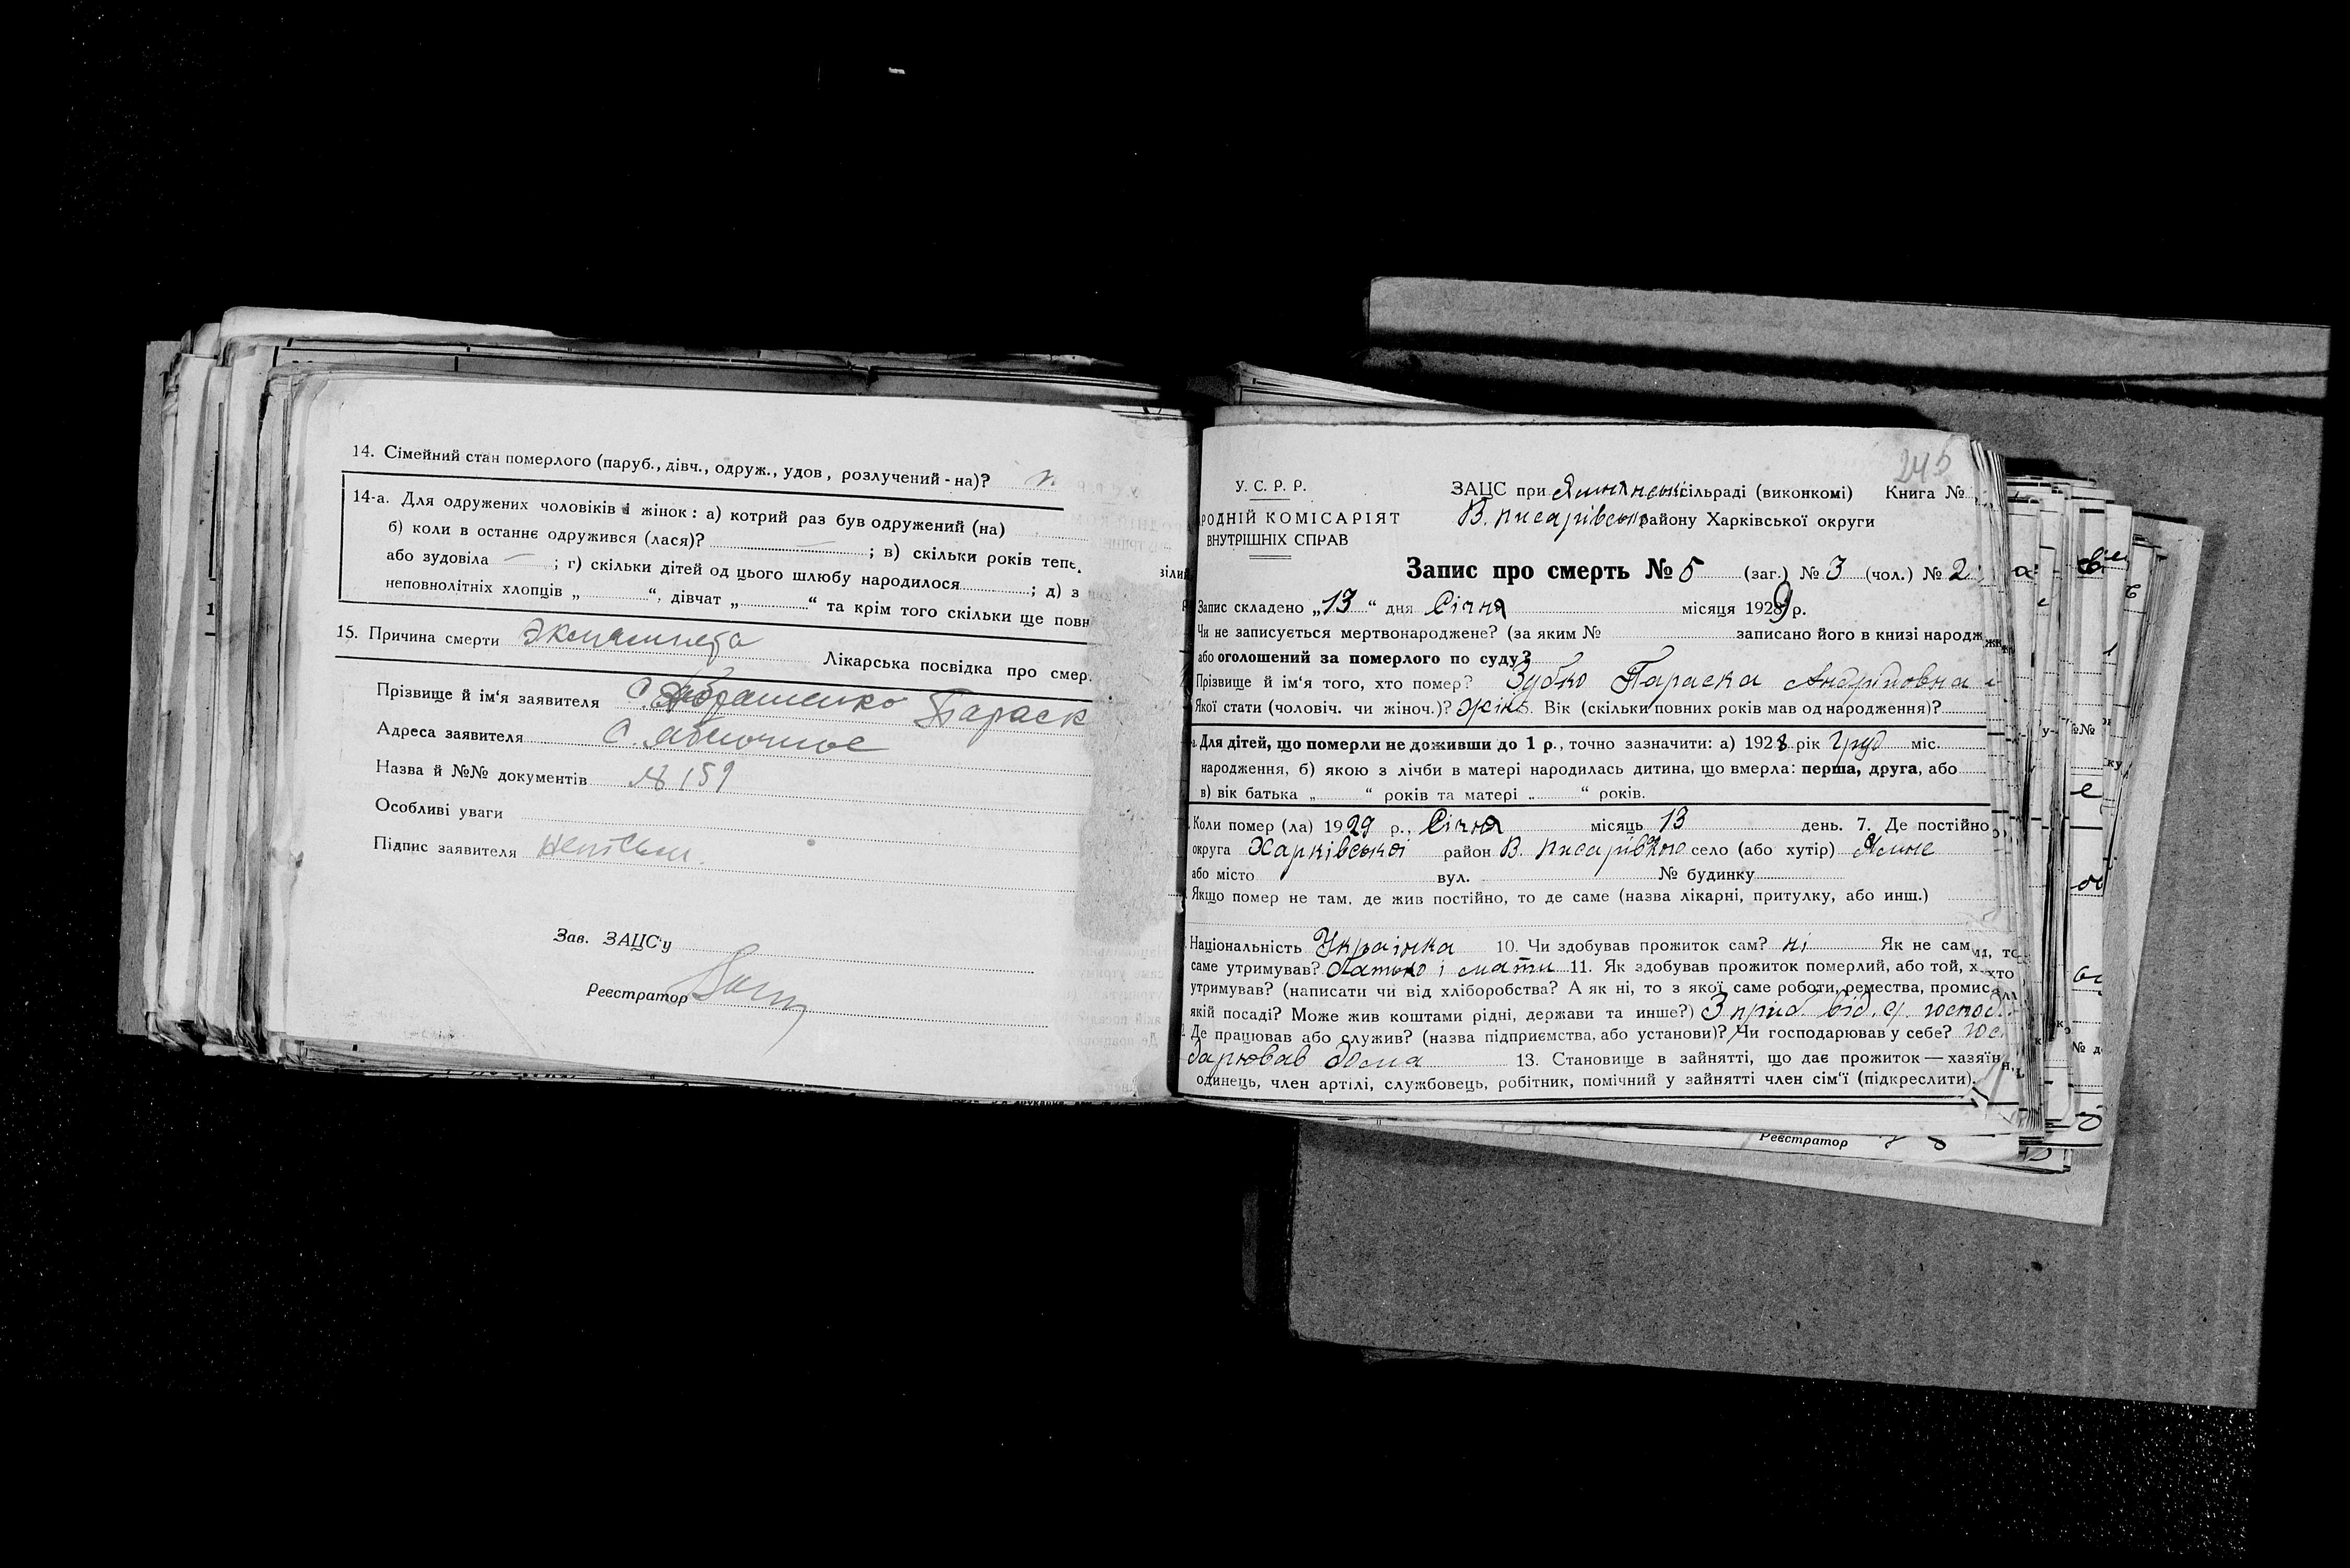 14. Сімейний стан померлого (паруб., дівч., одруж., удов, розлучений-на)?
14-а. Для одружених чоловіків і жінок: а) котрий раз був одружений (на)
б) коли в останнє одружився (лася)? — ; в) скільки років тепе
або зудовіла — ; г) скільки дітей од цього шлюбу народилося ; д) з
неповнолітніх хлопців „ “, дівчат „ “ та крім того скільки ще повн
15. Причина смерти
Лікарська посвідка про смер.
Прізвище й ім'я заявителя Абраменко Параск
Адреса заявителя С. Яблочное
Назва й №№ документів № 159
Особливі уваги
Підпис заявителя
Зав. ЗАЦС'у
Реєстратор
245
У. С. Р. Р.
РОДНІЙ КОМІСАРІЯТ
ВНУТРІШНІХ СПРАВ
ЗАЦС при сільраді (виконкомі) Книга №
В. Писарівськ району Харківської округи
Запис про смерть № 5 (заг.) № 3 (чол.) № 2
Запис складено „13“ дня Січня місяця 1929 р.
Чи не записується мертвонароджене? (за яким № записано його в книзі народж
або оголошений за померлого по суду?
Прізвище й ім'я того, хто помер? Зубко Параска Андріївна
Якої стати (чоловіч. чи жіноч.)? жін. Вік (скільки повних років мав од народження)?
Для дітей, що померли не доживши до 1 р., точно зазначити: а) 1928 рік груд міс.
народження, б) якою з лічби в матері народилась дитина, що вмерла: перша, друга, або
в) вік батька „ “ років та матері „ “ років.
Коли помер (ла) 1929 р., Січня місяць 13 день. 7. Де постійно
округа Харківської район В. Писарівкою село (або хутір) Ямне
або місто вул. № будинку
Якщо помер не там, де жив постійно, то де саме (назва лікарні, притулку, або инш.)
Національність Українка 10. Чи здобував прожиток сам? ні Як не сам
саме утримував? батько і мати 11. Як здобував прожиток померлий, або той, х
утримував? (написати чи від хліборобства? А як ні, то з якої саме роботи, ремества, промис
якій посаді? Може жив коштами рідні, держави та инше?) З приб. від с. господ.
Де працював або служив? (назва підприємства, або установи)? Чи господарював у себе? гос
дарював дома 13. Становище в зайнятті, що дає прожиток—хазяїн
одинець, член артілі, службовець, робітник, помічний у зайнятті член сім'ї (підкреслити).
Реєстратор